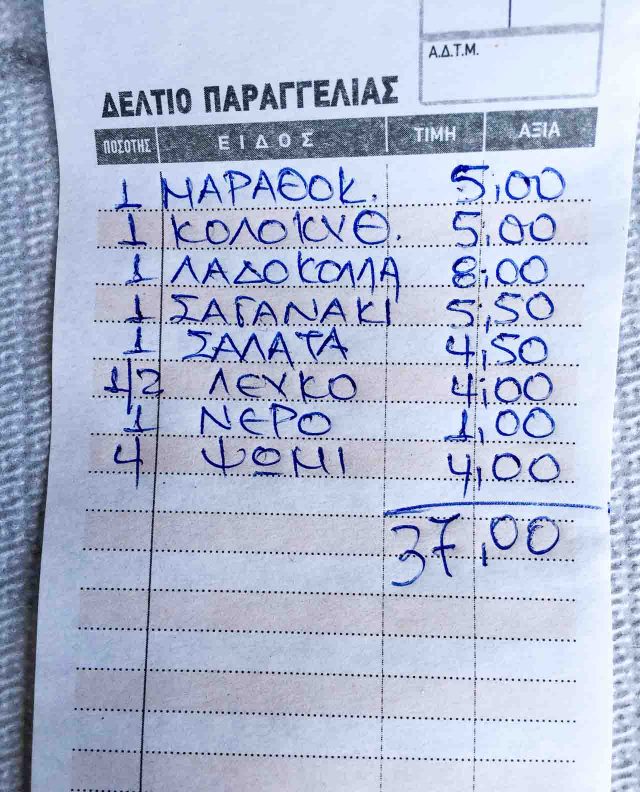 Α.Δ.Τ.Μ.
ΔΕΛΤΙΟ ΠΑΡΑΓΓΕΛΙΑΣ
ΠΟΣΟΤΗΣ ΕΙΔΟΣ ΤΙΜΗ ΑΞΙΑ
1 ΜΑΡΑΘΟΚ. 5,00
1 ΚΟΛΟΚΥΘ. 5,00
1 ΛΑΔΟΚΟΛΛΑ 8,00
1 ΣΑΓΑΝΑΚΙ 5,50
1 ΣΑΛΑΤΑ 4,50
1/2 ΛΕΥΚΟ 4,00
1 ΝΕΡΟ 1,00
4 ΨΩΜΙ 4,00
37,00